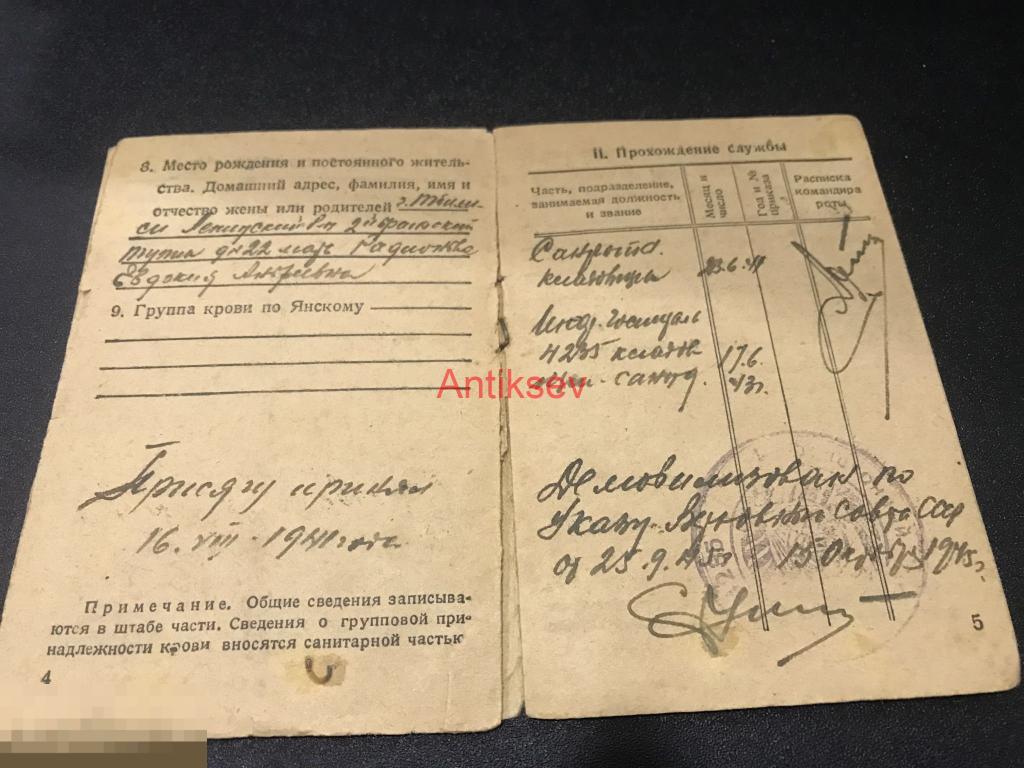 8. Место рождения и постоянного житель-
ства. Домашний адрес, фамилия, имя и
отчество жены или родителей г. Тбили-
си Ленинский р-н 2й
тупик дн 22 мать
Евдокия Андреевна
9. Группа крови по Янскому
Присягу принял
16. VIII. 1941 года
Примечание. Общие сведения записыва-
ются в штабе части. Сведения о групповой при-
надлежности крови вносятся санитарной частью
4
II. Прохождение службы
Часть, подразделение, занимаемая должность и звание
Месяц и число
Год и № приказа
Расписка командира роты
Санрота
23.6.41
Инф. госпиталь
4235 17.6
43г.
Демобилизован по
Указу Верховный совета ССР
от 25.9.45г 15 Октября 1945г.
5
Antiksev